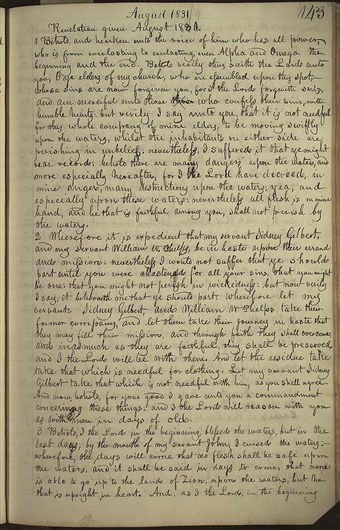 August 1831
143
Revelation given August 1831.
1 Behold, and hearken unto the voice of him who has all power,
who is from everlasting to everlasting, even Alpha and Omega the
beginning and the end. Behold verily thus saith the Lord unto
you, O ye elders of my church, who are assembled upon this spot,
whose sins are now forgiven you, for I the Lord forgiveth sins,
and am merciful unto those who confess their sins, with
humble hearts: but verily I say unto you, that it is not needful
for this whole company of mine elders, to be moving swiftly
upon the waters, whilst the inhabitants on either side are
perishing in unbelief: nevertheless, I suffered it that ye might
bear record: behold there are many dangers upon the waters, and
more especially hereafter, for I the Lord have decreed, in
mine anger, many destructions upon the waters; yea, and
especially upon these waters: nevertheless all flesh is in mine
hand, and he that is faithful among you, shall not perish by
the waters.
2 Wherefore it is expedient that my servant Sidney Gilbert,
and my servant William W. Phelps, be in haste upon their errand
and mission: nevertheless I would not suffer that ye should
part until you were chastened for all your sins, that you might
be one; that you might not perish in wickedness: but now verily
I say, it behooveth me that ye should part: wherefore let my
servants Sidney Gilbert and William W. Phelps take their
former company, and let them take their journey in haste that
they may fill their mission, and through faith they shall overcome;
and inasmuch as they are faithful, they shall be preserved,
and I the Lord will be with them. And let the residue take
that which is needful for clothing. Let my servant Sidney
Gilbert take that which is not needful with him, as you shall agree.
And now behold, for your good I gave unto you a commandment
concerning these things: and I the Lord will reason with you
as with men in days of old.
3 Behold, I the Lord in the beginning blessed the waters, but in the
last days, by the mouth of my servant John, I cursed the waters:
wherefore, the days will come that no flesh shall be safe upon
the waters, and it shall be said in days to come, that none
is able to go up to the land of Zion, upon the waters, but he
that is upright in heart. And, as I the Lord, in the beginning